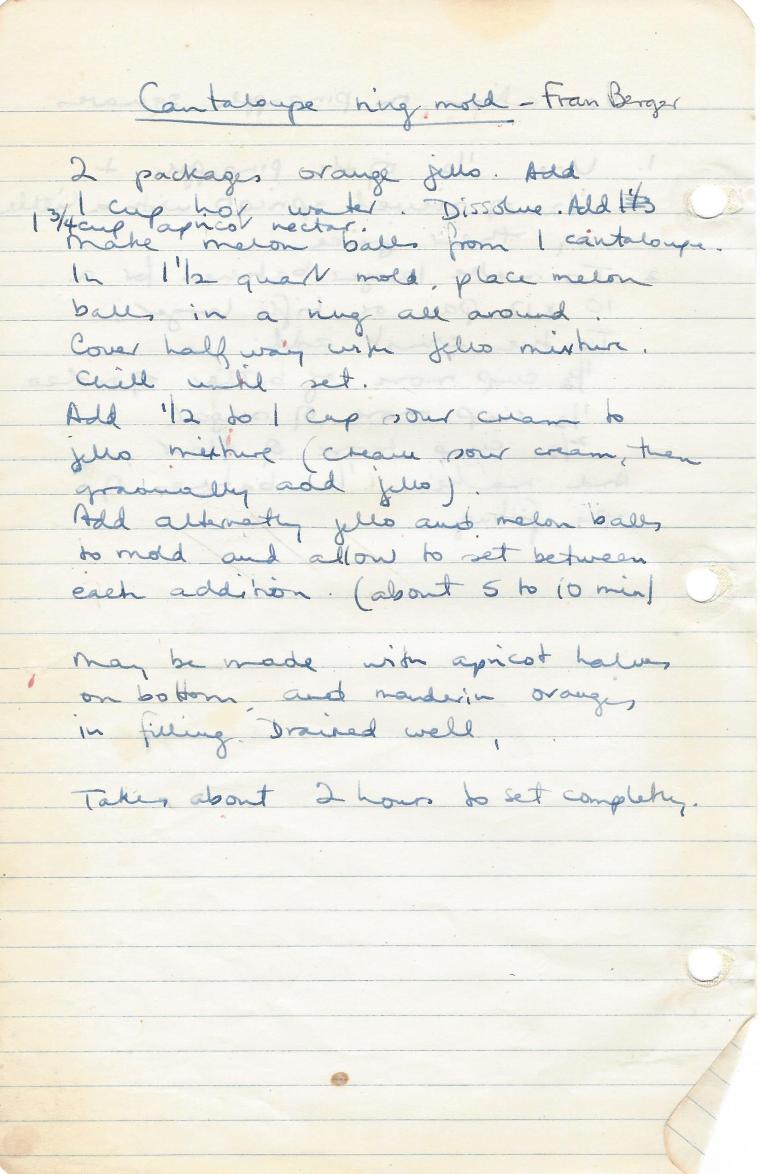 Cantaloupe ring mold - Fran Berger
2 packages orange jello. Add
1 cup hot water. Dissolve. Add
1 3/4 cup apricot nectar.
Make melon balls from 1 cantaloupe.
In 1 1/2 quart mold, place melon
balls in a ring all around.
Cover half way with jello mixture.
Chill until set.
Add 1/2 to 1 cup sour cream to
jello mixture (cream sour cream, then
gradually add jello).
Add alternatly jello and melon balls
to mold and allow to set between
each addition. (about 5 to 10 min)
May be made with apricot halves
on bottom and manderin oranges
in filling. Drained well,
Takes about 2 hours to set completly.